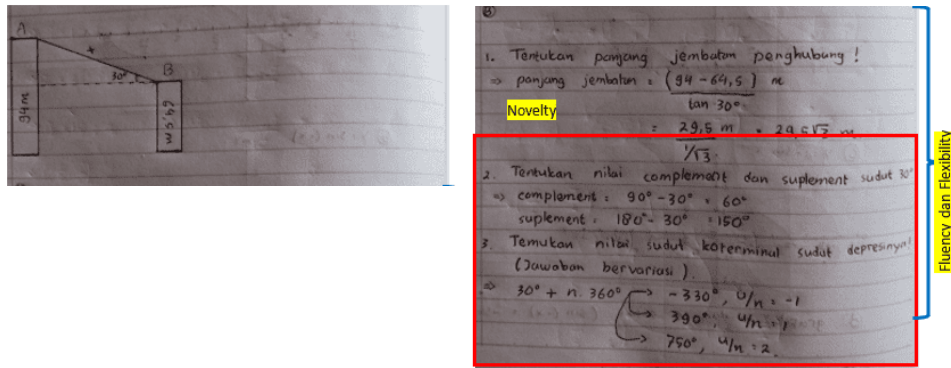 A
x
30°
B
94 m
64,5 m
1. Tentukan panjang jembatan penghubung !
⇒ panjang jembatan = (94 - 64,5) m
tan 30°
Novelty
= 29,5 m = 29,5√3 m
1/√3
2. Tentukan nilai complement dan suplement sudut 30°
⇒ complement : 90° - 30° = 60°
suplement : 180° - 30° = 150°
3. Temukan nilai sudut koterminal sudut depresinya!
(Jawaban bervariasi).
⇒ 30° + n. 360° → -330°, u/n = -1
→ 390°, u/n = 1
→ 750°, u/n = 2
Fluency dan Flexibility